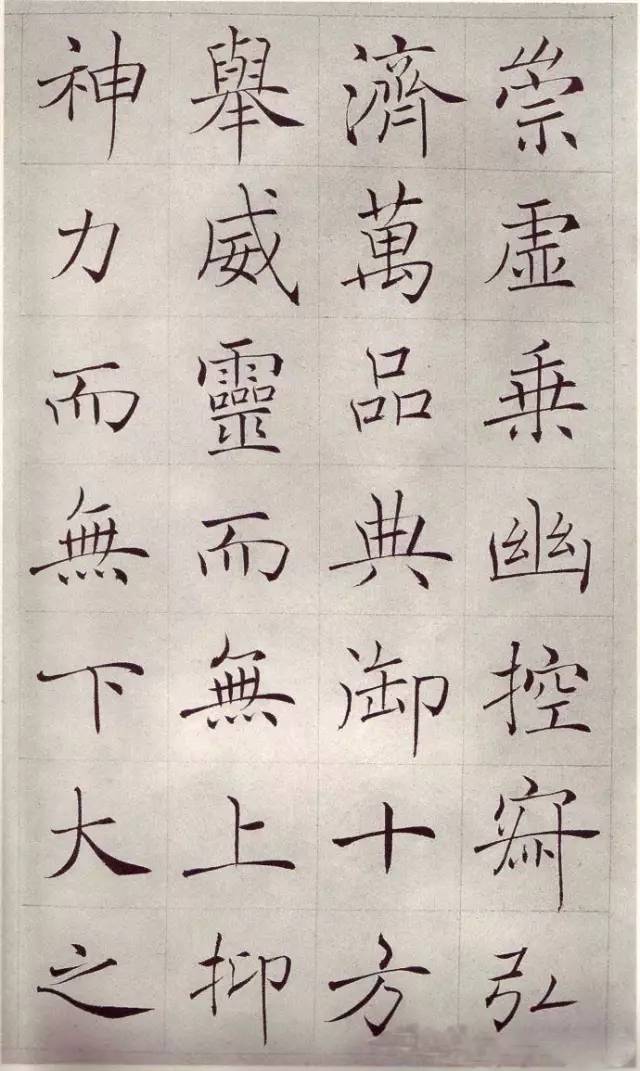 崇虛乗幽控寂弘
濟萬品典御十方
舉威靈而無上抑
神力而無下大之